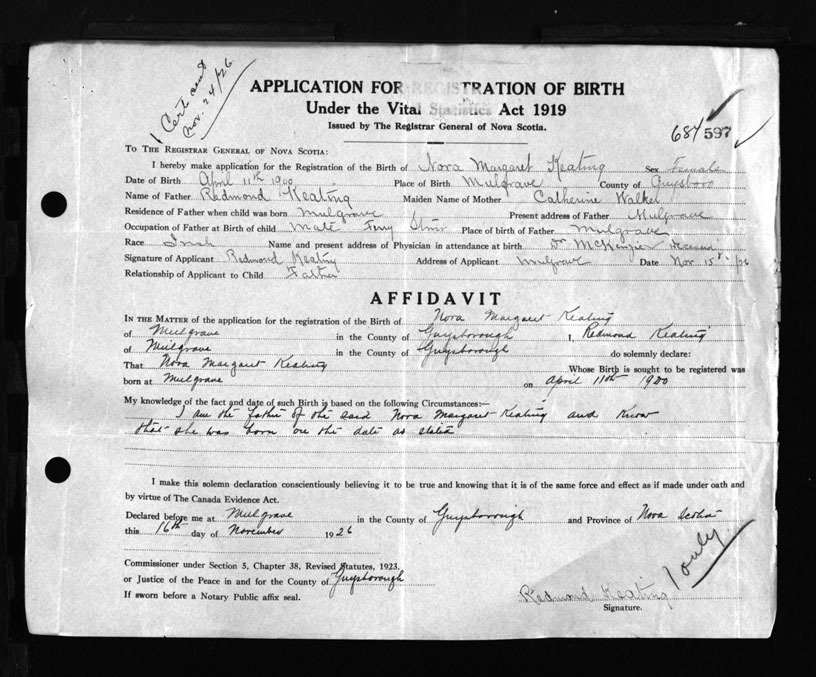 Cert sent
Nov. 24/26.
APPLICATION FOR REGISTRATION OF BIRTH
Under the Vital Statistics Act 1919
Issued by The Registrar General of Nova Scotia.
684 597
TO THE REGISTRAR GENERAL OF NOVA SCOTIA:
I hereby make application for the Registration of the Birth of Nora Margaret Keating Sex Female
Date of Birth April 11th 1900 Place of Birth Mulgrave County of Guysboro
Name of Father Redmond Keating Maiden Name of Mother Catherine
Residence of Father when child was born Mulgrave Present address of Father Mulgrave
Occupation of Father at Birth of child Mate Ferry Place of birth of Father Mulgrave
Race Irish Name and present address of Physician in attendance at birth Dr McKenzie
Signature of Applicant Redmond Keating Address of Applicant Mulgrave Date Nov 15 /26
Relationship of Applicant to Child Father
AFFIDAVIT
IN THE MATTER of the application for the registration of the Birth of Nora Margaret Keating
of Mulgrave in the County of Guysborough I, Redmond Keating
of Mulgrave in the County of Guysborough do solemnly declare:
That Nora Margaret Keating Whose Birth is sought to be registered was
born at Mulgrave on April 11th 1900
My knowledge of the fact and date of such Birth is based on the following Circumstances:—
I am the father of the said Nora Margaret Keating and know
that she was born on the date as stated
I make this solemn declaration conscientiously believing it to be true and knowing that it is of the same force and effect as if made under oath and
by virtue of The Canada Evidence Act.
Declared before me at Mulgrave in the County of Guysborough and Province of Nova Scotia
this 16th day of November 1926
Commissioner under Section 5, Chapter 38, Revised Statutes, 1923.
or Justice of the Peace in and for the County of Guysborough
If sworn before a Notary Public affix seal.
Redmond Keating
1 only
Signature.